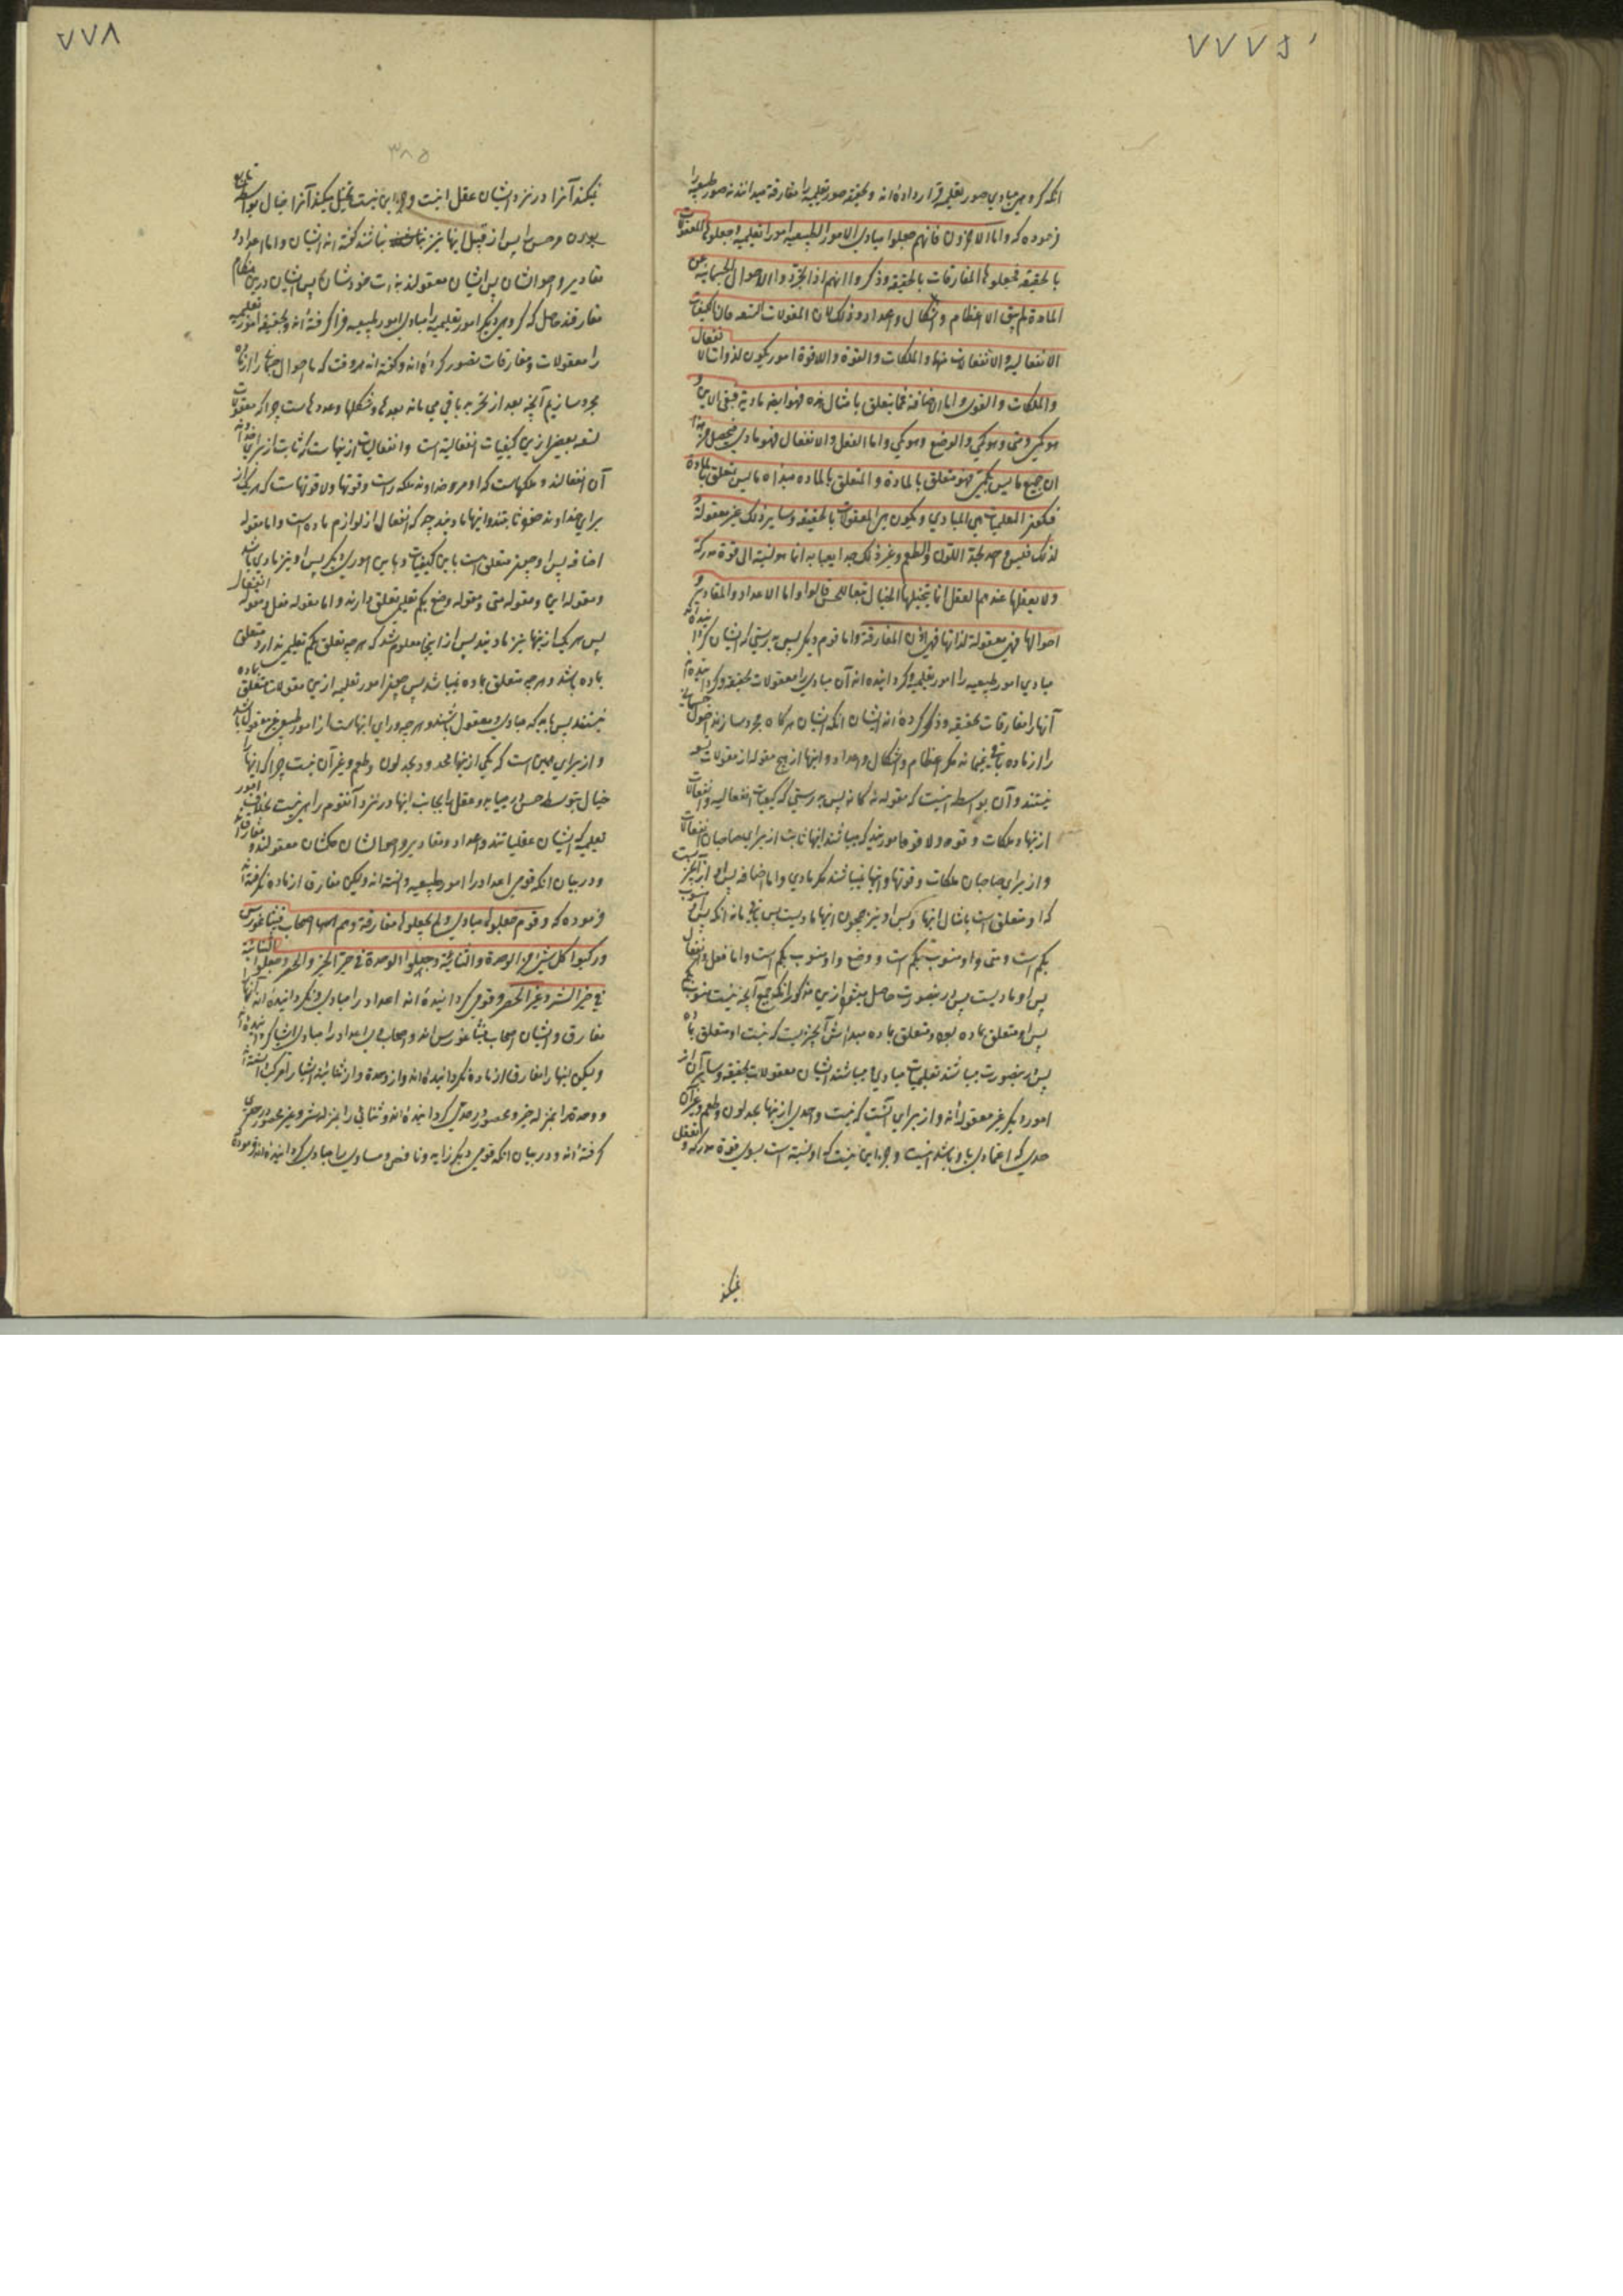 ۷۷۷
انکه گروهی مبادی صور تعلیمیه قرار داده‌اند و بحقیقه صور تعلیمیه را مفارقه میدانند نه صور طبیعیه را
فرموده که واما الاخرون فانهم جعلوا مبادی الامور الطبیعیه امورا تعلیمیه وجعلوها المعقولات
بالحقیقه وجعلوها المفارقات بالحقیقه وذکروا انهم اذا جردوا الاحوال الجسمانیه عن
المادة لم یبق الا عظام واشکال واعداد وذلک لان المقولات التسعه فان الکیفیات
الانفعالیه والانفعالات منها والملکات والقوة واللاقوة امور یکون لذوات الانفعال
والملکات والقوی واما الاضافه فما یتعلق بامثال هذه فهو ایضا مادیة فبقی الاین و
هو کمی ومتی وهو کمی والوضع وهو کمی واما الفعل والانفعال فهو مادی فیحصل من هذا
ان جمیع ما لیس بکمی فهو متعلق بالمادة والمتعلق بالماده مبداه ما لیس متعلق بالمادة
فیکون التعلیمیات هی المبادی ویکون هی المعقولات بالحقیقه وسایر ذلک غیر معقولة و
لذلک فلیس احد یحد اللون والطعم وغیر ذلک حدا یعبا به انما هو نسبة الی قوة مدرکة
ولا یعقلها عندهم العقل انما یتخیلها الخیال تبعا للحس قالوا واما الاعداد والمقادیر و
احوالها فهی معقولة لذاتها فهی اذن المفارقة واما قوم دیگر پس بدرستی که ایشان گردانیده‌اند
مبادی امور طبیعیه را امور تعلیمیه و گردانیده‌اند آن مبادی را معقولات بحقیقه و گردانیده‌اند
آنها را مفارقات بحقیقه و ذکر کرده‌اند ایشان انکه ایشان هرگاه مجرد سازند احوال جسمانیه
را از ماده باقی نمی‌ماند مگر عظام واشکال واعداد و اینها از هیچ مقوله از مقولات تسعه
نیستند و آن بواسطه اینست که مقوله نه‌گانه پس بدرستی که کیفیات انفعالیه وانفعالات
از اینها وملکات وقوه ولاقوه اموریند که میباشند اینها ثابت از برای صاحبان انفعالات
و از برای صاحبان ملکات وقوتها واینها نمیباشند مگر مادی واما اضافه پس او از آن چیزیست
که او متعلق است بامثال اینها پس او نیز همچون اینها مادیست پس باقی ماند انکه پس این منسوب
بکم است ومتی واو منسوب بکم است ووضع واو منسوب بکم است واما فعل وانفعال
پس او مادیست پس درینصورت حاصل میشود ازین مذکور انکه جمیع آنچه نیست منسوب بکم
پس او متعلق بماده بود ومتعلق بماده مبداش آنچیزیست که نیست او متعلق بماده
پس درینصورت میباشند تعلیمیات مبادی ومیباشند ایشان معقولات بحقیقه وسایر آن از
امور دیگر غیر معقوله‌اند واز برای آنست که نیست واحدی از اینها بحد لون وطعم وغیر آن
حدی که اعتمادی باو باشد نیست وجز این نیست که او نسبة است بسوی قوة مدرکه وتعقل
نمیکند
۷۷۸
۳۸۵
نمیکند آنرا در نزد ایشان عقل اینست وجز این نیست تخیل میکند آنرا خیال بواسطه تابع
بودن او حس را پس از قبل اینها نیز نباشند گفته‌اند ایشان واما اعداد و
مقادیر واحوالشان پس ایشان معقولند بذات خودشان پس ایشان درین هنگام
مفارقند حاصل که گروهی دیگر امور تعلیمیه را مبادی امور طبیعیه فراگرفته‌اند وبحقیقه امور تعلیمیه
را معقولات ومفارقات تصور کرده‌اند وگفته‌اند هروقت که ما احوال جسمانی را از ماده
مجرد سازیم آنچه بعد از تجرید باقی می‌ماند بعدها وشکلها وعددهاست چراکه مقولات
تسعه بعضی ازین کیفیات انفعالیه است وانفعالیات از اینهاست که ثابت از برای خداوند
آن انفعالند وملکهاست که او مر خداوند ملکه راست وقوتها ولاقوتهاست که هر یک از
برای خداوند خود ثابتند واینها مادیند چه که انفعال از لوازم ماده است واما مقوله
اضافه پس او چیزی متعلق است باین کیفیات وباین امور دیگر پس او نیز مادی باشد
ومقوله این ومقوله متی ومقوله وضع بکم تعلیمی تعلق دارند واما مقوله فعل ومقوله انفعال
پس هریک از اینها نیز مادیند پس از اینجا معلوم شد که هرچه تعلق بکم تعلیمی ندارد متعلق
بماده باشد وهرچه متعلق بماده نباشد پس چیز امور تعلیمیه ازین مقولات متعلق بماده
نیستند پس باید که مبادی ومعقول باشند وهرچه ورای اینهاست از امور طبیعی غیر معقول باشد
واز برای همین است که یکی از اینها محدود بحد لون وطعم وغیر آن نیست چراکه اینها را
خیال بتوسط حس در میابد وعقل را بجانب اینها در نزد آنقوم راهی نیست بخلاف امور
تعلیمیه که ایشان عقلیاتند واعداد ومقادیر واحوالشان همگشان معقولند ومفارق‌اند
ودر بیان انکه قومی اعداد را امور طبیعیه دانسته‌اند ولیکن مفارق از ماده نگرفته‌اند
فرموده که وقوم جعلوها مبادی ولم یجعلوها مفارقة وهم اصحاب فیثاغورس
ورکبوا کل شیء من الوحدة والثنائیة وجعلوا الوحدة فی حیز الخیر والحصر وجعلوا الثنائیة
فی حیز الشر وغیر الحصر وقومی گردانیده‌اند اعداد را مبادی ونگردانیده‌اند آنها را
مفارق وایشان اصحاب فیثاغورس‌اند واصحاب وی اعداد را مبادی اشیا گردانیده‌اند
ولیکن اینها را مفارق از ماده نگردانیده‌اند واز وحدة واز ثنائیه اشیا را مرکب ساخته‌اند
ووحدة را بمنزله خیر ومحصور در حدی گردانیده‌اند وثنائی را بمنزله شر وغیر محصور در حدی
گرفته‌اند ودر بیان انکه قومی دیگر زاید وناقص ومساوی را مبادی گردانیده‌اند فرموده